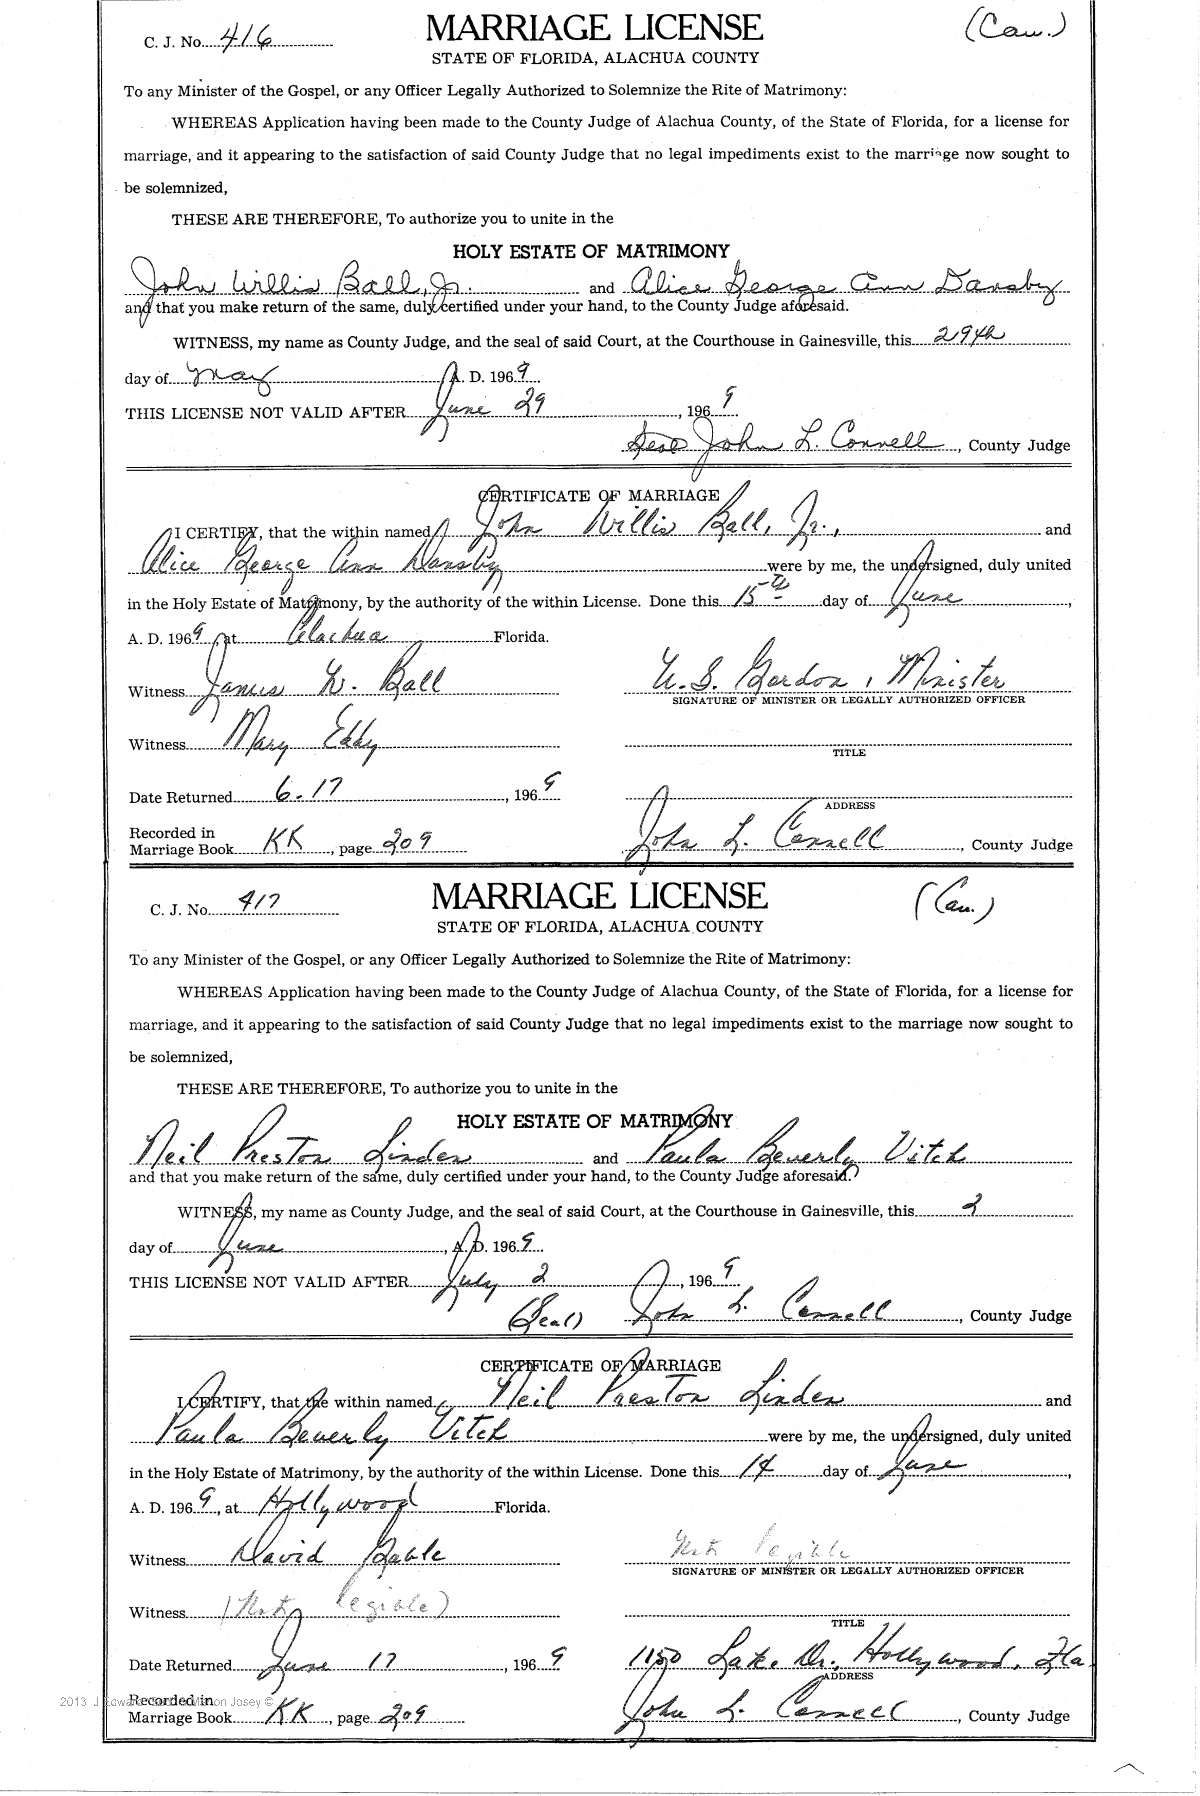 C. J. No. 416
MARRIAGE LICENSE
(Cau.)
STATE OF FLORIDA, ALACHUA COUNTY
To any Minister of the Gospel, or any Officer Legally Authorized to Solemnize the Rite of Matrimony:
WHEREAS Application having been made to the County Judge of Alachua County, of the State of Florida, for a license for
marriage, and it appearing to the satisfaction of said County Judge that no legal impediments exist to the marriage now sought to
be solemnized,
THESE ARE THEREFORE, To authorize you to unite in the
HOLY ESTATE OF MATRIMONY
John Willis Ball, Jr. and Alice George Ann Dansby
and that you make return of the same, duly certified under your hand, to the County Judge aforesaid.
WITNESS, my name as County Judge, and the seal of said Court, at the Courthouse in Gainesville, this 29th
day of May A. D. 1969
THIS LICENSE NOT VALID AFTER June 29, 1969
Seal John L. Connell, County Judge
CERTIFICATE OF MARRIAGE
I CERTIFY, that the within named John Willis Ball, Jr., and
Alice George Ann Dansby were by me, the undersigned, duly united
in the Holy Estate of Matrimony, by the authority of the within License. Done this 15th day of June,
A. D. 1969, at Alachua Florida.
Witness James W. Ball
U. S. Gordon, Minister
SIGNATURE OF MINISTER OR LEGALLY AUTHORIZED OFFICER
Witness Mary Eddy
TITLE
Date Returned 6-17, 1969
ADDRESS
Recorded in
Marriage Book KK, page 209
John L. Connell, County Judge
C. J. No. 417
MARRIAGE LICENSE
(Cau.)
STATE OF FLORIDA, ALACHUA COUNTY
To any Minister of the Gospel, or any Officer Legally Authorized to Solemnize the Rite of Matrimony:
WHEREAS Application having been made to the County Judge of Alachua County, of the State of Florida, for a license for
marriage, and it appearing to the satisfaction of said County Judge that no legal impediments exist to the marriage now sought to
be solemnized,
THESE ARE THEREFORE, To authorize you to unite in the
HOLY ESTATE OF MATRIMONY
Neil Preston Linden and Paula Beverly Vitch
and that you make return of the same, duly certified under your hand, to the County Judge aforesaid.
WITNESS, my name as County Judge, and the seal of said Court, at the Courthouse in Gainesville, this 2
day of June, A. D. 1969
THIS LICENSE NOT VALID AFTER July 2, 1969
(Seal) John L. Connell, County Judge
CERTIFICATE OF MARRIAGE
I CERTIFY, that the within named Neil Preston Linden and
Paula Beverly Vitch were by me, the undersigned, duly united
in the Holy Estate of Matrimony, by the authority of the within License. Done this 14 day of June,
A. D. 1969, at Hollywood Florida.
Witness David
Not legible
SIGNATURE OF MINISTER OR LEGALLY AUTHORIZED OFFICER
Witness (Not legible)
TITLE
Date Returned June 17, 1969
1150 Lake Dr., Hollywood, Fla.
ADDRESS
Recorded in
Marriage Book KK, page 209
John L. Connell, County Judge